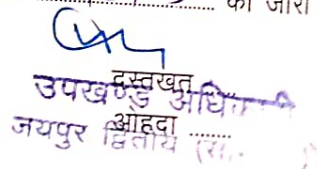 को जारी
दस्तखत
उपखण्ड अधि
ओहदा ........
जयपुर द्वितीय